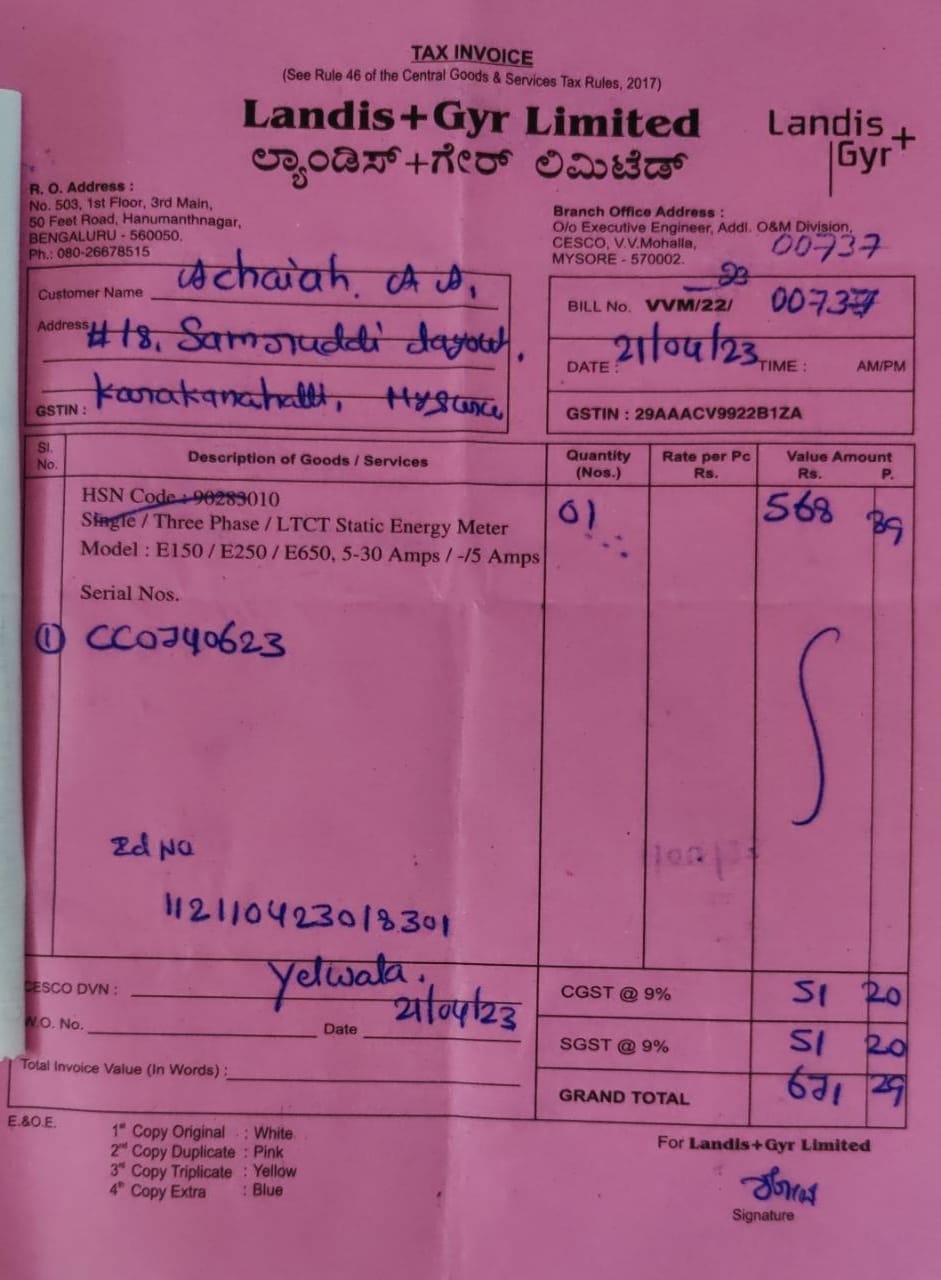 TAX INVOICE
(See Rule 46 of the Central Goods & Services Tax Rules, 2017)
Landis+Gyr Limited
ಲ್ಯಾಂಡಿಸ್+ಗೇರ್ ಲಿಮಿಟೆಡ್
Landis
Gyr+
R. O. Address :
No. 503, 1st Floor, 3rd Main,
50 Feet Road, Hanumanthnagar,
BENGALURU - 560050.
Ph.: 080-26678515
Branch Office Address :
O/o Executive Engineer, Addl. O&M Division,
CESCO, V.V.Mohalla,
MYSORE - 570002.
00737
Customer Name Achaiah. A A,
Address #18, Samruddi Layout,
Kanakanahatti, Mysuru
GSTIN :
23
BILL No. VVM/22/ 00737
DATE : 21/04/23 TIME : AM/PM
GSTIN : 29AAACV9922B1ZA
Sl. No. Description of Goods / Services Quantity (Nos.) Rate per Pc Rs. Value Amount Rs. P.
HSN Code : 90283010
Single / Three Phase / LTCT Static Energy Meter 01 568 39
Model : E150 / E250 / E650, 5-30 Amps / -/5 Amps
Serial Nos.
① CC0740623
Id No
112110423018301
CESCO DVN : Yelwala.
W.O. No. Date 21/04/23
Total Invoice Value (In Words) :
CGST @ 9% 51 20
SGST @ 9% 51 20
GRAND TOTAL 671 29
E.&O.E.
1st Copy Original : White
2nd Copy Duplicate : Pink
3rd Copy Triplicate : Yellow
4th Copy Extra : Blue
For Landis+Gyr Limited
Signature